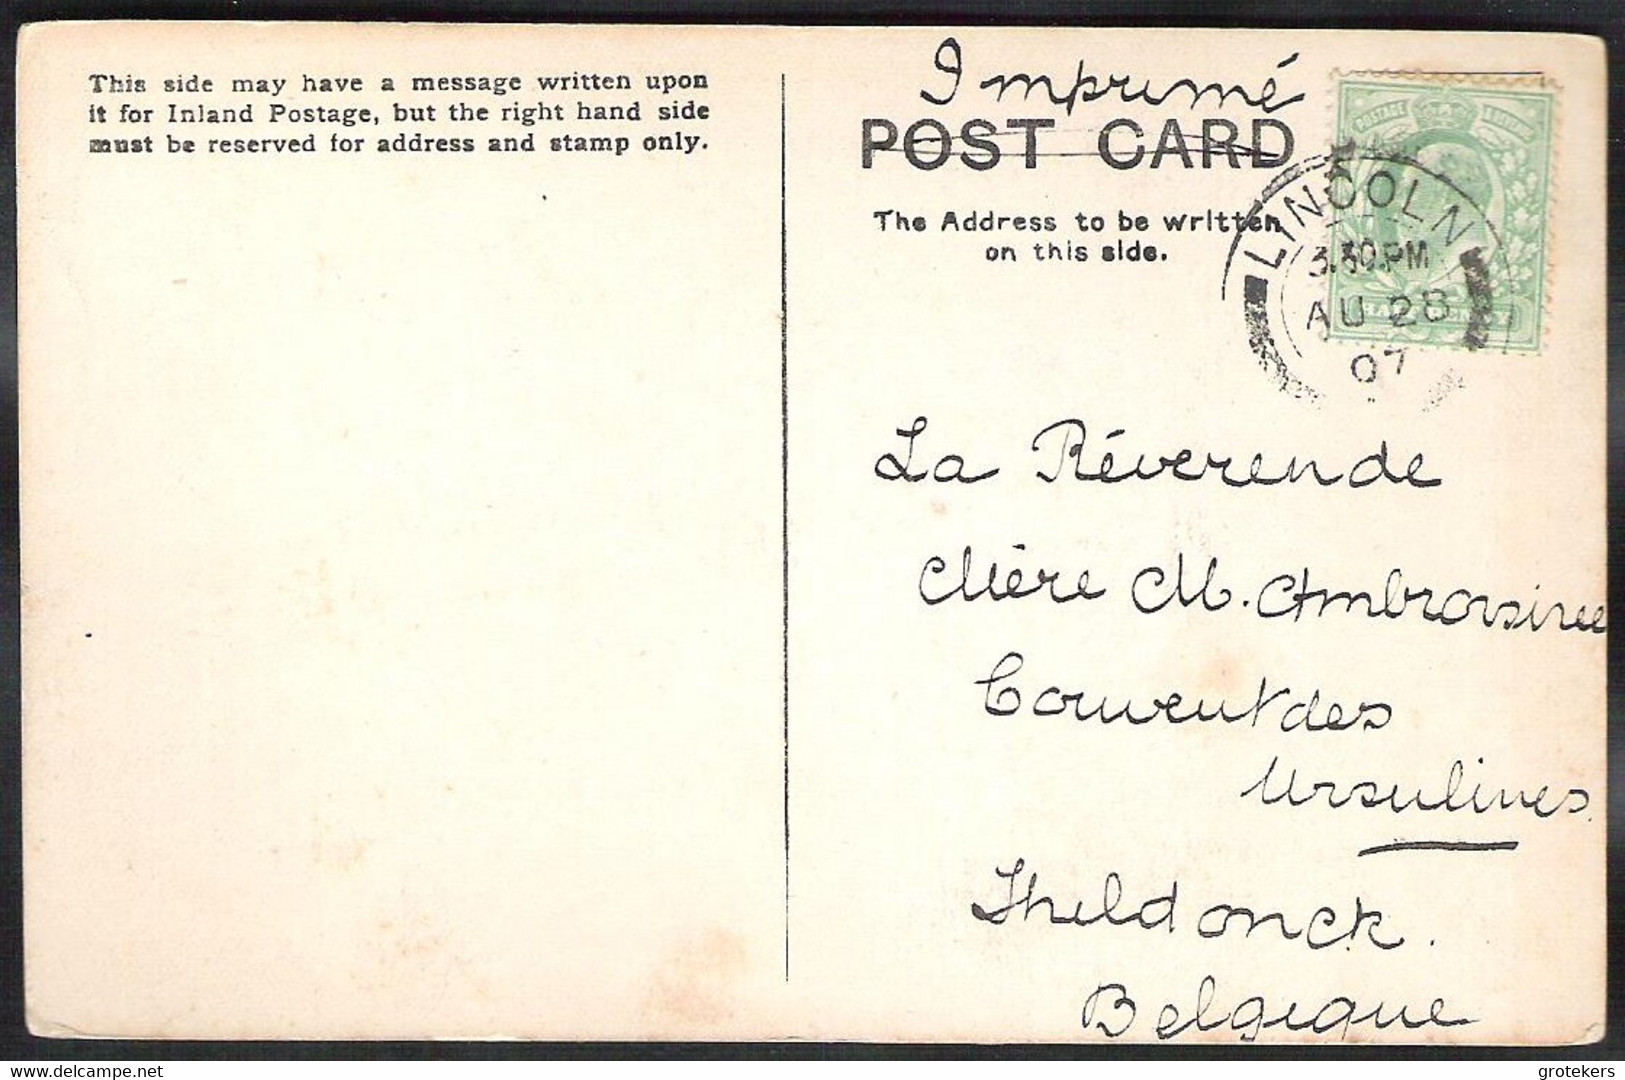 This side may have a message written upon
it for Inland Postage, but the right hand side
must be reserved for address and stamp only.
Imprimé
POST CARD
The Address to be written
on this side.
POSTAGE & REVENUE
LINCOLN
3.30.PM
AU 28
07
HALF PENNY
La Révérende
Mère M. Ambroisinee
Couvent des
Ursulines.
Thildonck.
Belgique
delcampe.net
grotekers